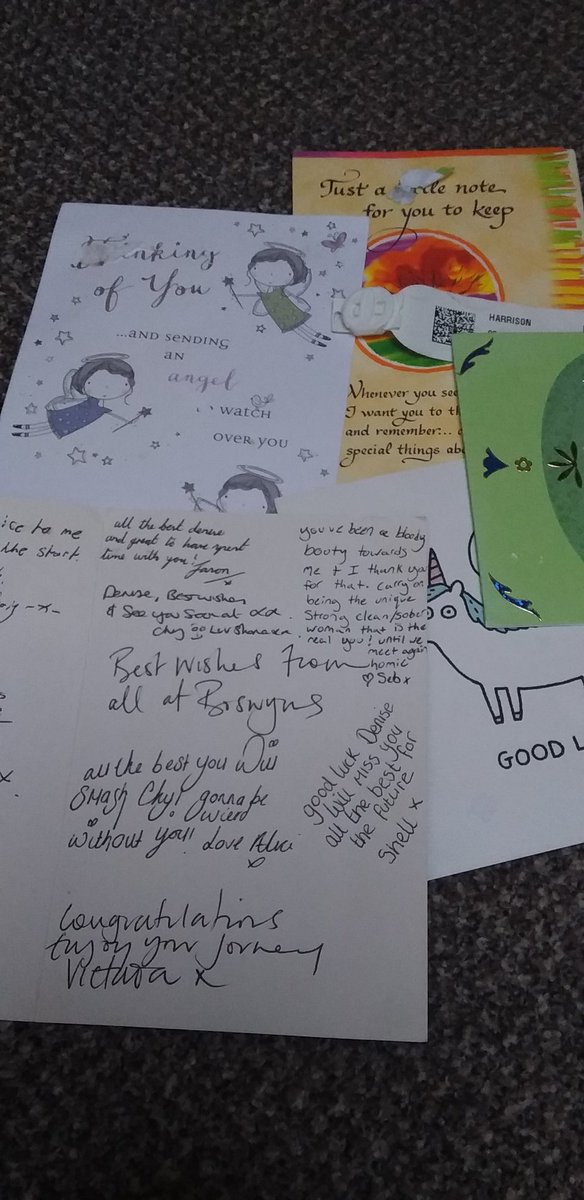 Just a note
for you to keep
Thinking
of You
...AND SENDING
AN
angel
WATCH
OVER YOU
HARRISON
Whenever you see
I want you to
and remember...
special things
GOOD
to me
the start.
-x-
x.
all the best denise
and great to have spent
time with you!
Jason
x
Denise, Best wishes
& See you Soon at
Chy Luv Shana xx
Best Wishes from
all at Boswyns
all the best you Will
SMash Chy! gonna be
wierd
without you!! Love
x
Congratulations
Enjoy your Journey
Victoria x
you've been a bloody
booty towards
me & I thank you
for that. Carry on
being the unique
Strong clean/sober
woman that is the
real you! until we
meet again
homie
♡ Seb x
good luck Denise
Will MISS you
all the best for
the future
Shell x